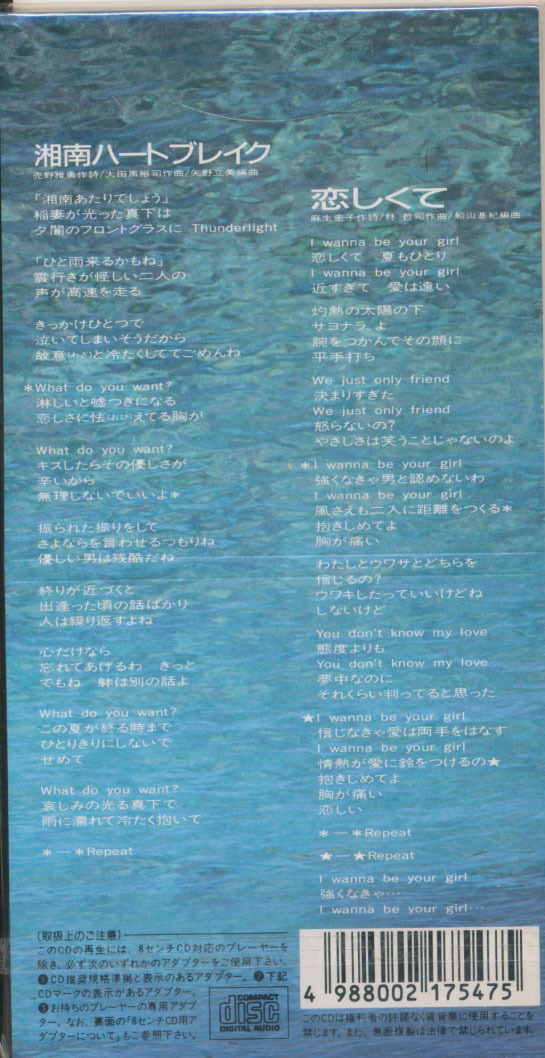 湘南ハートブレイク
売野雅勇作詩/大田黒裕司作曲/矢野立美編曲
「湘南あたりでしょう」
稲妻が光った真下は
夕闇のフロントグラスに Thunderlight
「ひと雨来るかもね」
雲行きが怪しい二人の
声が高速を走る
きっかけひとつで
泣いてしまいそうだから
故意(わざ)と冷たくしててごめんね
*What do you want?
淋しいと嘘つきになる
恋しさに怯(おび)えてる胸が
What do you want?
キスしたらその優しさが
辛いから
無理しないでいいよ*
振られた振りをして
さよならを言わせるつもりね
優しい男は残酷だね
終りが近づくと
出逢った頃の話ばかり
人は繰り返すよね
心だけなら
忘れてあげるわ きっと
でもね 躰は別の話よ
What do you want?
この夏が終る時まで
ひとりきりにしないで
せめて
What do you want?
哀しみの光る真下で
雨に濡れて冷たく抱いて
*―*Repeat
恋しくて
麻生圭子作詩/林 哲司作曲/船山基紀編曲
I wanna be your girl
恋しくて 夏もひとり
I wanna be your girl
近すぎて 愛は遠い
灼熱の太陽の下
サヨナラ、よ
腕をつかんでその顔に
平手打ち
We just only friend
決まりすぎた
We just only friend
怒らないの?
やさしさは笑うことじゃないのよ
*I wanna be your girl
強くなきゃ男と認めないわ
I wanna be your girl
風さえも二人に距離をつくる*
抱きしめてよ
胸が痛い
わたしとウワサとどちらを
信じるの?
ウワキしたっていいけどね
しないけど
You don't know my love
態度よりも
You don't know my love
夢中なのに
それくらい判ってると思った
★I wanna be your girl
信じなきゃ愛は両手をはなす
I wanna be your girl
情熱が愛に鈴をつけるの★
抱きしめてよ
胸が痛い
恋しい
*―*Repeat
★―★Repeat
I wanna be your girl
強くなきゃ…
I wanna be your girl…
〔取扱上のご注意〕
このCDの再生には、8センチCD対応のプレーヤーを
除き、必ず次のいずれかのアダプターをご使用下さい。
❶CD推奨規格準拠と表示のあるアダプター。❷下記
CDマークの表示があるアダプター。
❸お持ちのプレーヤーの専用アダプ
ター。なお、裏面の「8センチCD用ア
ダプターについて」もご参照下さい。
COMPACT
disc
DIGITAL AUDIO
4 988002 175475
このCDは権利者の許諾なく賃貸業に使用することを
禁じます。また、無断複製は法律で禁じられています。